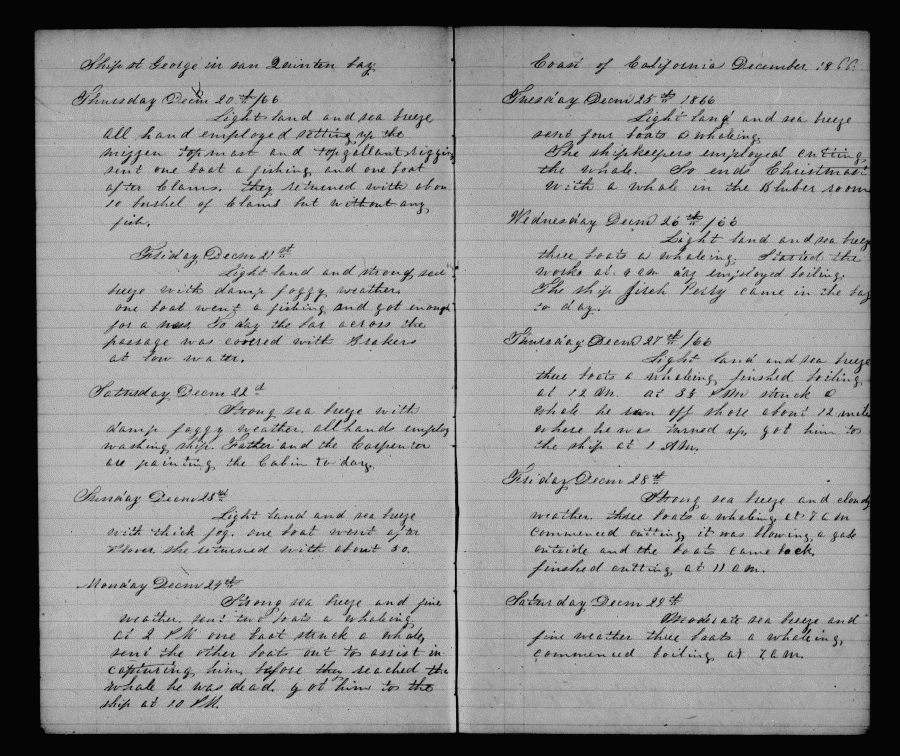 Ship St George in san Quinton bay
Thursday Decm 20th/66
Light land and sea breeze
all hand employed setting up the
mizzen topmast and topgallant rigging
sent one boat a fishing and one boat
after Clams. they returned with about
10 bushel of Clams but without any
fish.
Friday Decm 21st
Light land and strong sea
breeze with damp foggy weather
one boat went a fishing and got enough
for a mess. To day the bar across the
passage was covered with Brakers
at low water.
Saturday Decm 22d
Strong sea breeze with
damp foggy weather, all hands employ
washing ship. Father and the Carpenter
are painting the Cabin to day.
Sunday Decm 23rd
Light land and sea breeze
with thick fog. one boat went after
Plover she returned with about 50.
Monday Decm 24th
Strong sea breeze and fine
weather, sent two boats a whaleing
at 2 P.M. one boat struck a whale,
sent the other boats out to assist in
capturing him, before they reached the
whale he was dead. got him to the
ship at 10 P.M.
Coast of California December 1866.
Tuesday Decm 25th 1866
Light land and sea breeze
sent four boats a whaleing,
The shipkeepers employed cutting
the whale. So ends Christmast
with a whale in the Bluber room
Wednesday Decm 26th/66
Light land and sea breeze
three boats a whaleing. Started the
works at 9 am day employed boiling.
The ship Jireh Perry came in the bay
to day.
Thursday Decm 27th/66
Light land and sea breeze
three boats a whaleing finshed boiling
at 12 M. at 3½ P.M. struck a
whale he run off shore about 12 miles
where he was turned up, got him to
the ship at 1 A.M.
Friday Decm 28th
Strong sea breeze and cloudy
weather. three boats a whaleing, at 7 a m
commenced cutting, it was blowing a gale
outside and the boats came back,
finshed cutting at 11 a m.
Saturday Decm 29th
Moderate sea breeze and
fine weather three boats a whaleing,
commenced boiling at 7 a m.